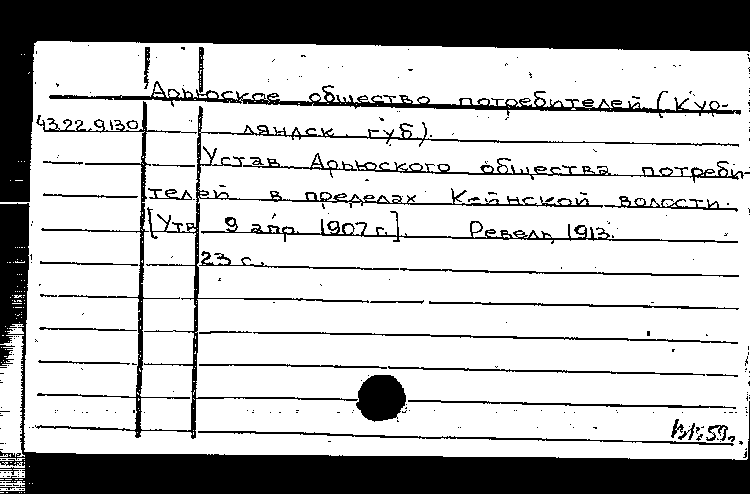 Арьюское общество потребителей (Кур-
43.22.9.130 ляндск. губ).
Устав Арьюского общества потреби-
телей в пределах Кейнской волости.
[Утв 9 апр. 1907 г.]. Ревель, 1913.
23 с.
59г.